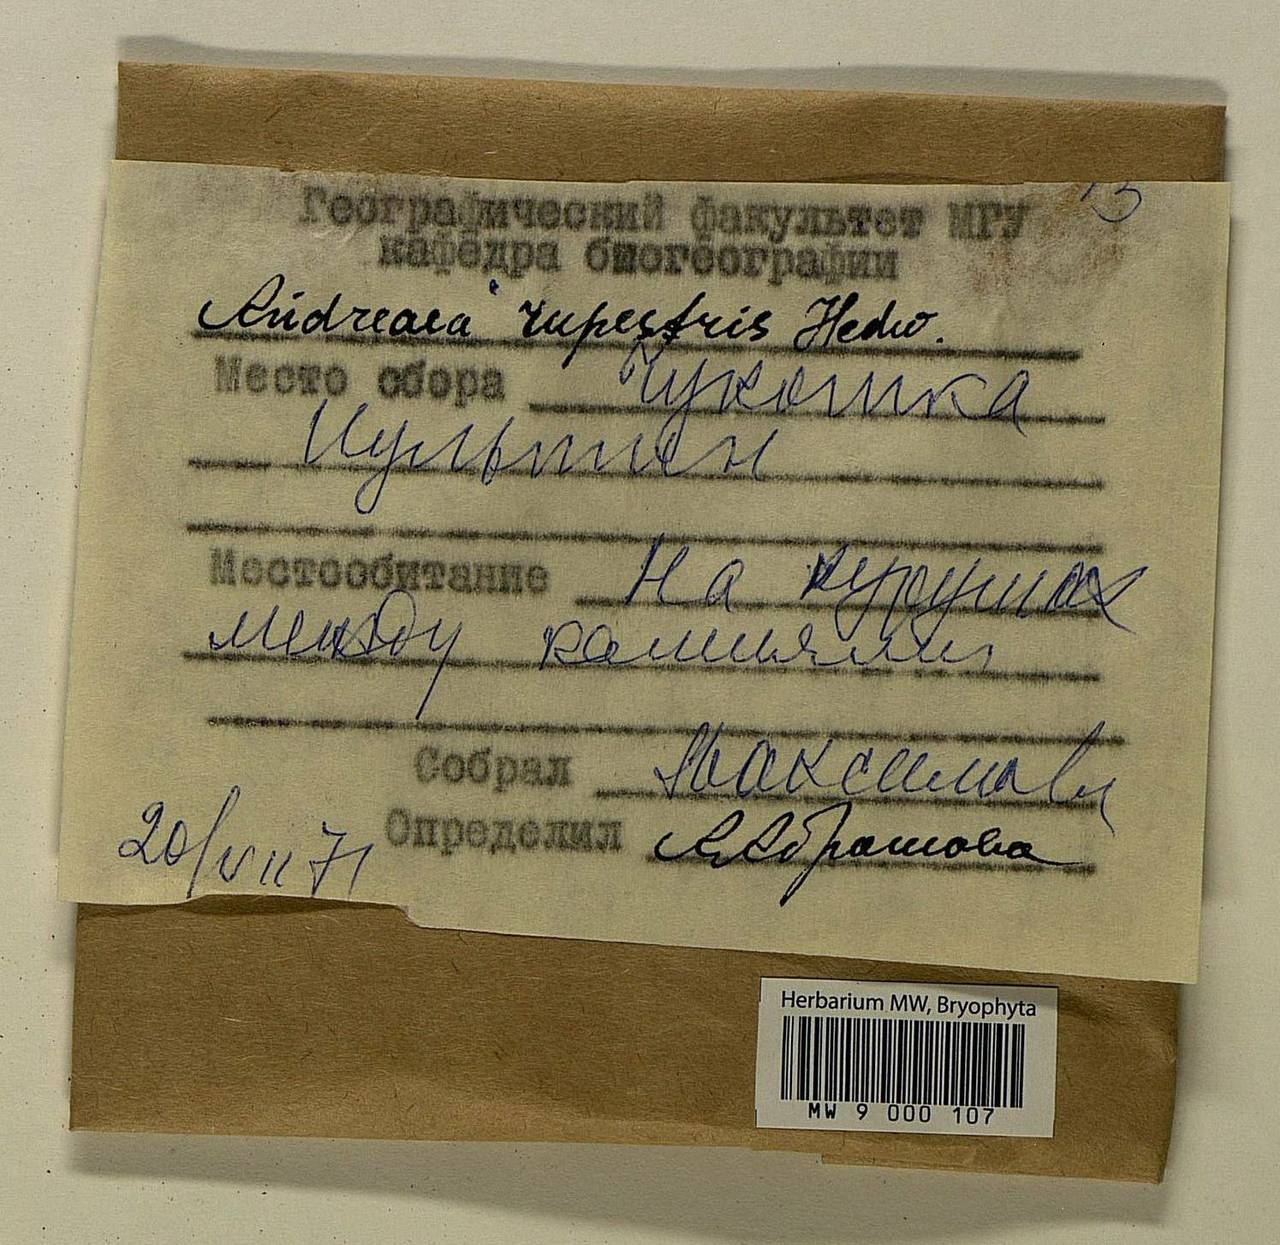 13
Географический факультет МГУ
кафедра биогеографии
Andreaea rupestris Hedw.
Место сбора Чукотка
Иультин
Местообитание На курумах
между камнями
Собрал
Определил А.Абрамова
20/VII 71
Herbarium MW, Bryophyta
MW 9 000 107